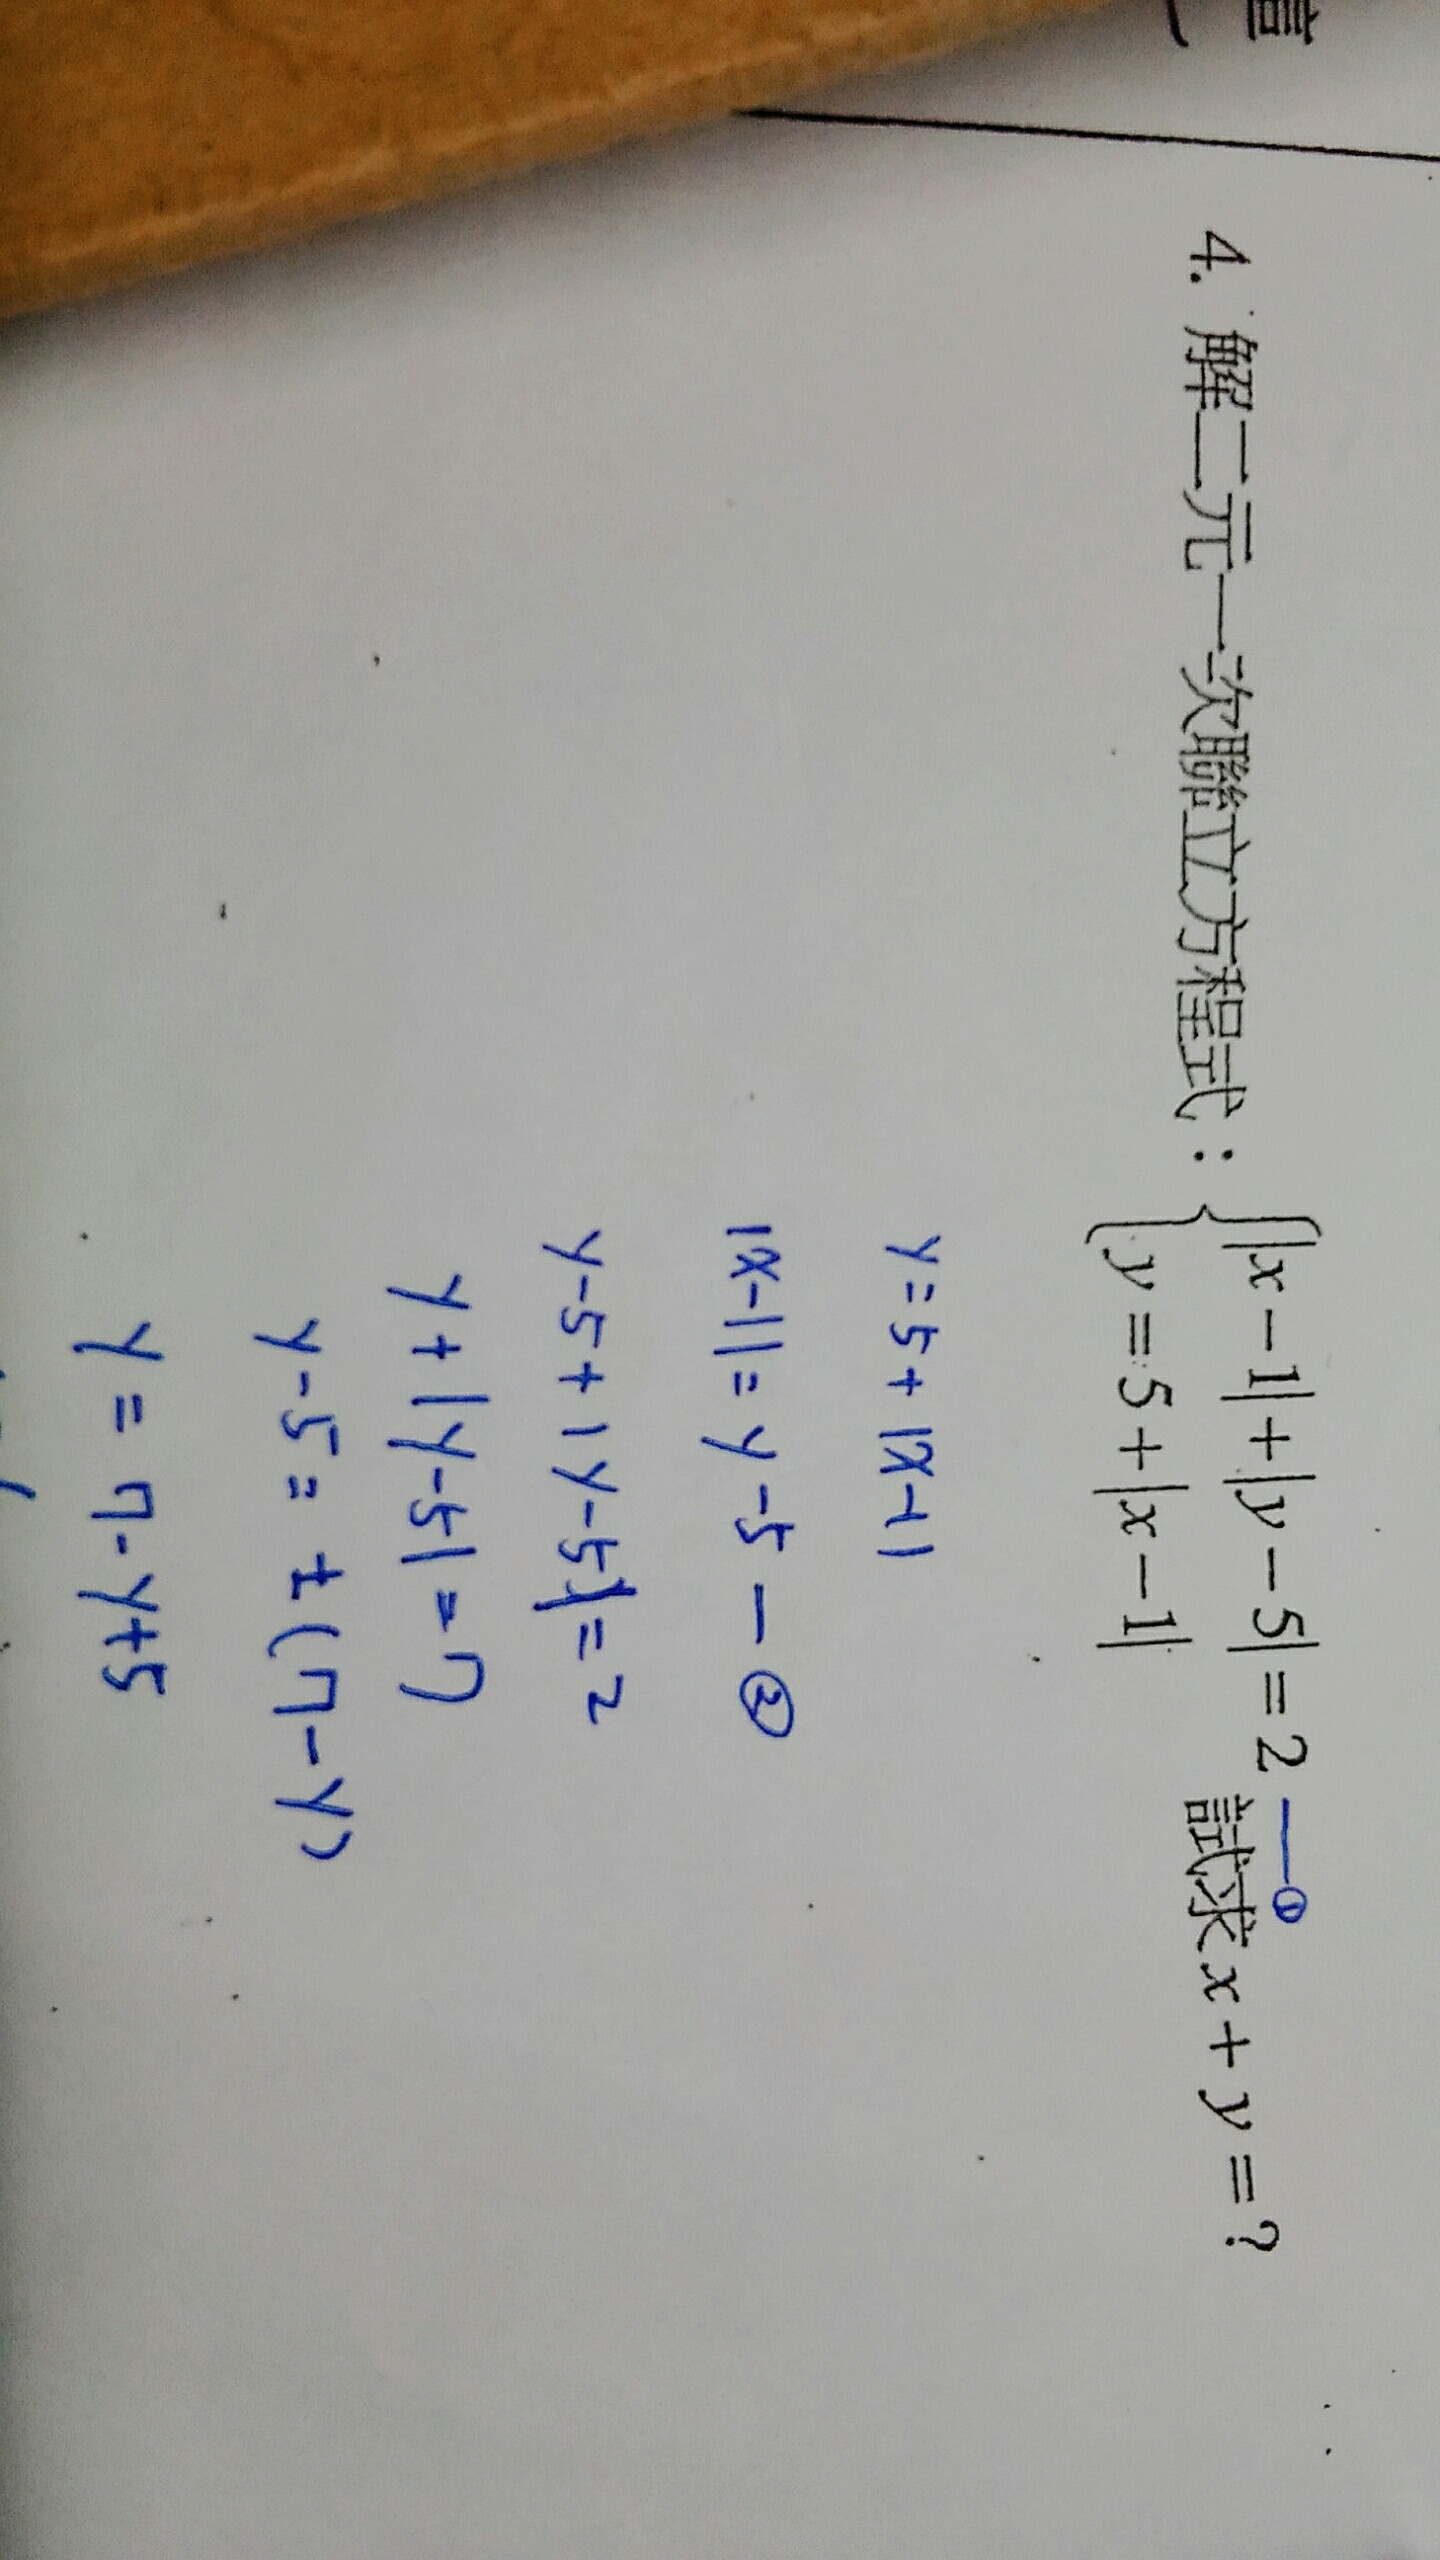 4. 解二元一次聯立方程式：{|x-1|+|y-5|=2 —①
y=5+|x-1|
試求x+y=?
y=5+|x-1|
|x-1|=y-5 —②
y-5+|y-5|=2
y+|y-5|=7
y-5=±(7-y)
y=7-y+5